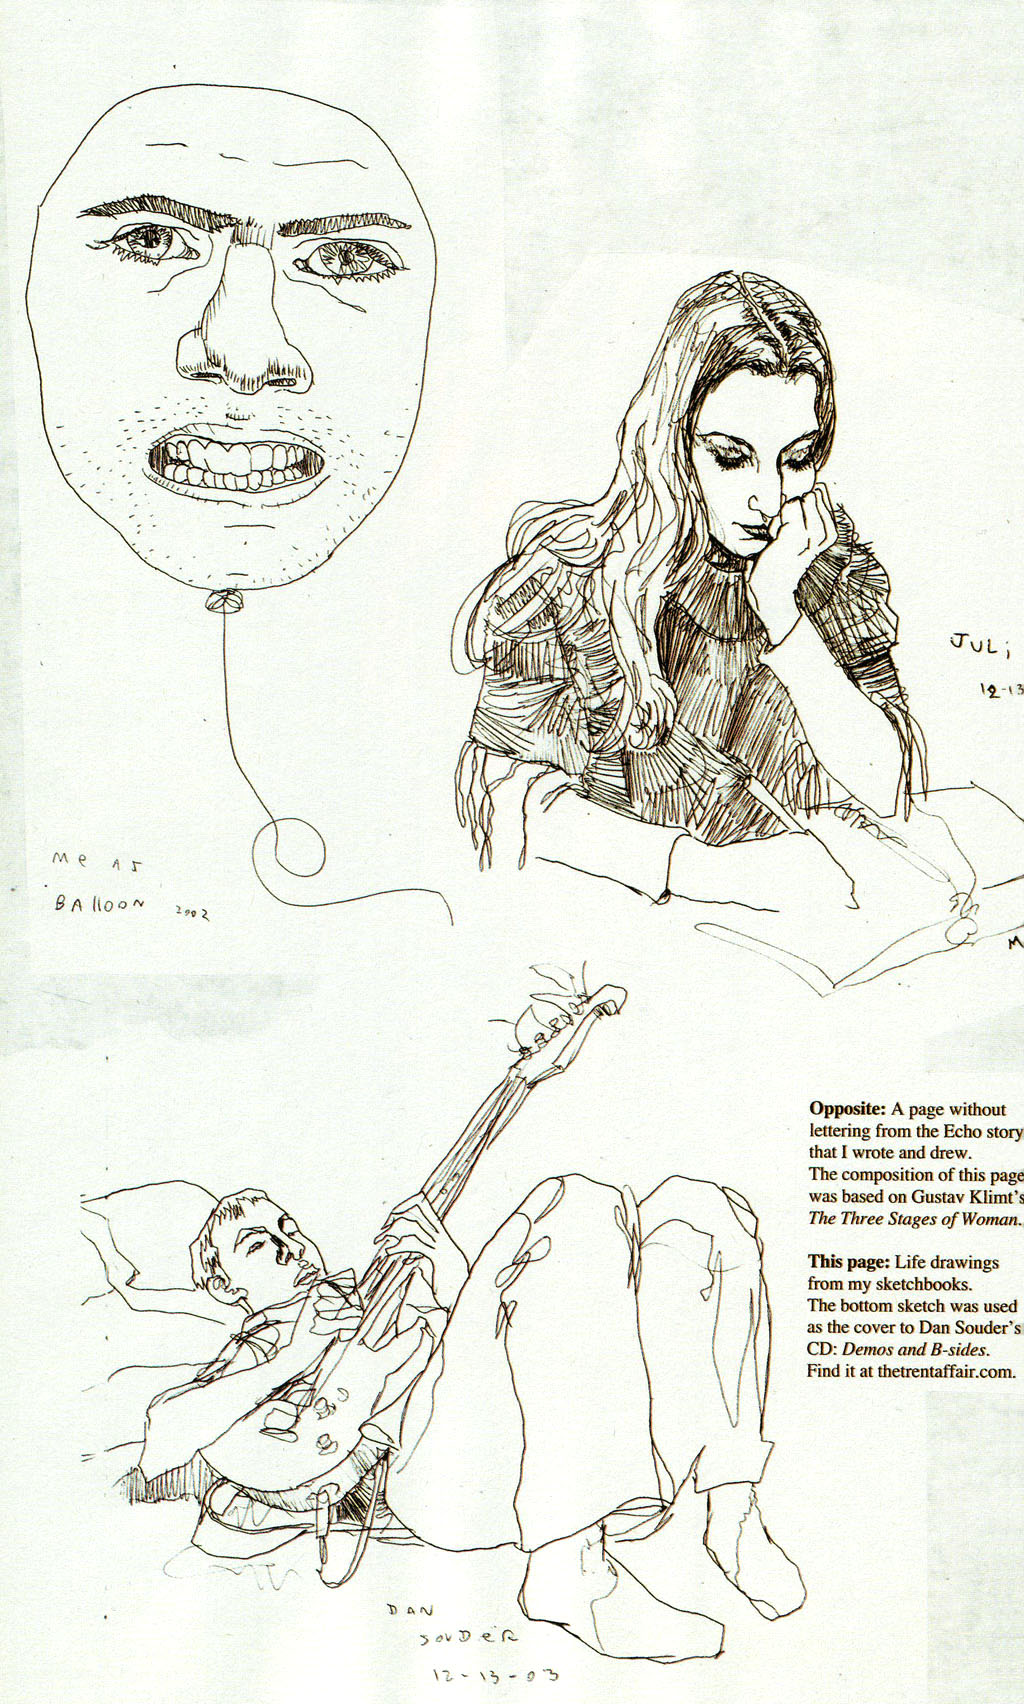 ME AS
BAllOON 2002
JULi
12-13
M
Opposite: A page without
lettering from the Echo story
that I wrote and drew.
The composition of this page
was based on Gustav Klimt's
The Three Stages of Woman.
This page: Life drawings
from my sketchbooks.
The bottom sketch was used
as the cover to Dan Souder's
CD: Demos and B-sides.
Find it at thetrentaffair.com.
DAN
SOUDER
12-13-03